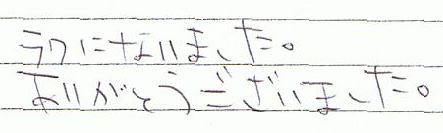 ラクになりました。
ありがとうございました。